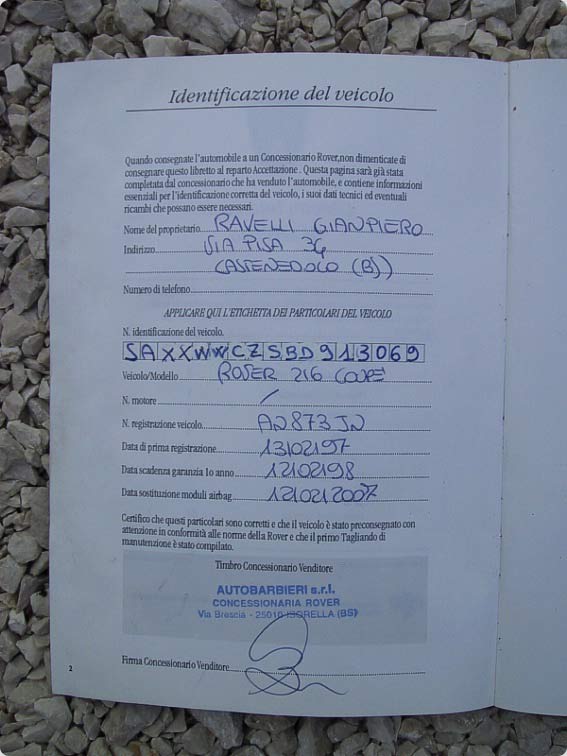 Identificazione del veicolo
Quando consegnate l'automobile a un Concessionario Rover,non dimenticate di
consegnare questo libretto al reparto Accettazione . Questa pagina sarà già stata
completata dal concessionario che ha venduto l'automobile, e contiene informazioni
essenziali per l'identificazione corretta del veicolo, i suoi dati tecnici ed eventuali
ricambi che possano essere necessari.
Nome del proprietario RAVELLI GIANPIERO
Indirizzo VIA PISA 34
CASTENEDOLO (BS)
Numero di telefono
APPLICARE QUI L'ETICHETTA DEI PARTICOLARI DEL VEICOLO
N. identificazione del veicolo.
SAXXWWCZSBD913069
Veicolo/Modello ROVER 216 COUPE'
N. motore /
N. registrazione veicolo AN873JN
Data di prima registrazione 13/02/97
Data scadenza garanzia 1o anno 12/02/98
Data sostituzione moduli airbag 12/02/2007
Certifico che questi particolari sono corretti e che il veicolo è stato preconsegnato con
attenzione in conformità alle norme della Rover e che il primo Tagliando di
manutenzione è stato compilato.
Timbro Concessionario Venditore
AUTOBARBIERI s.r.l.
CONCESSIONARIA ROVER
Via Brescia - 25010 ISORELLA (BS)
Firma Concessionario Venditore
2